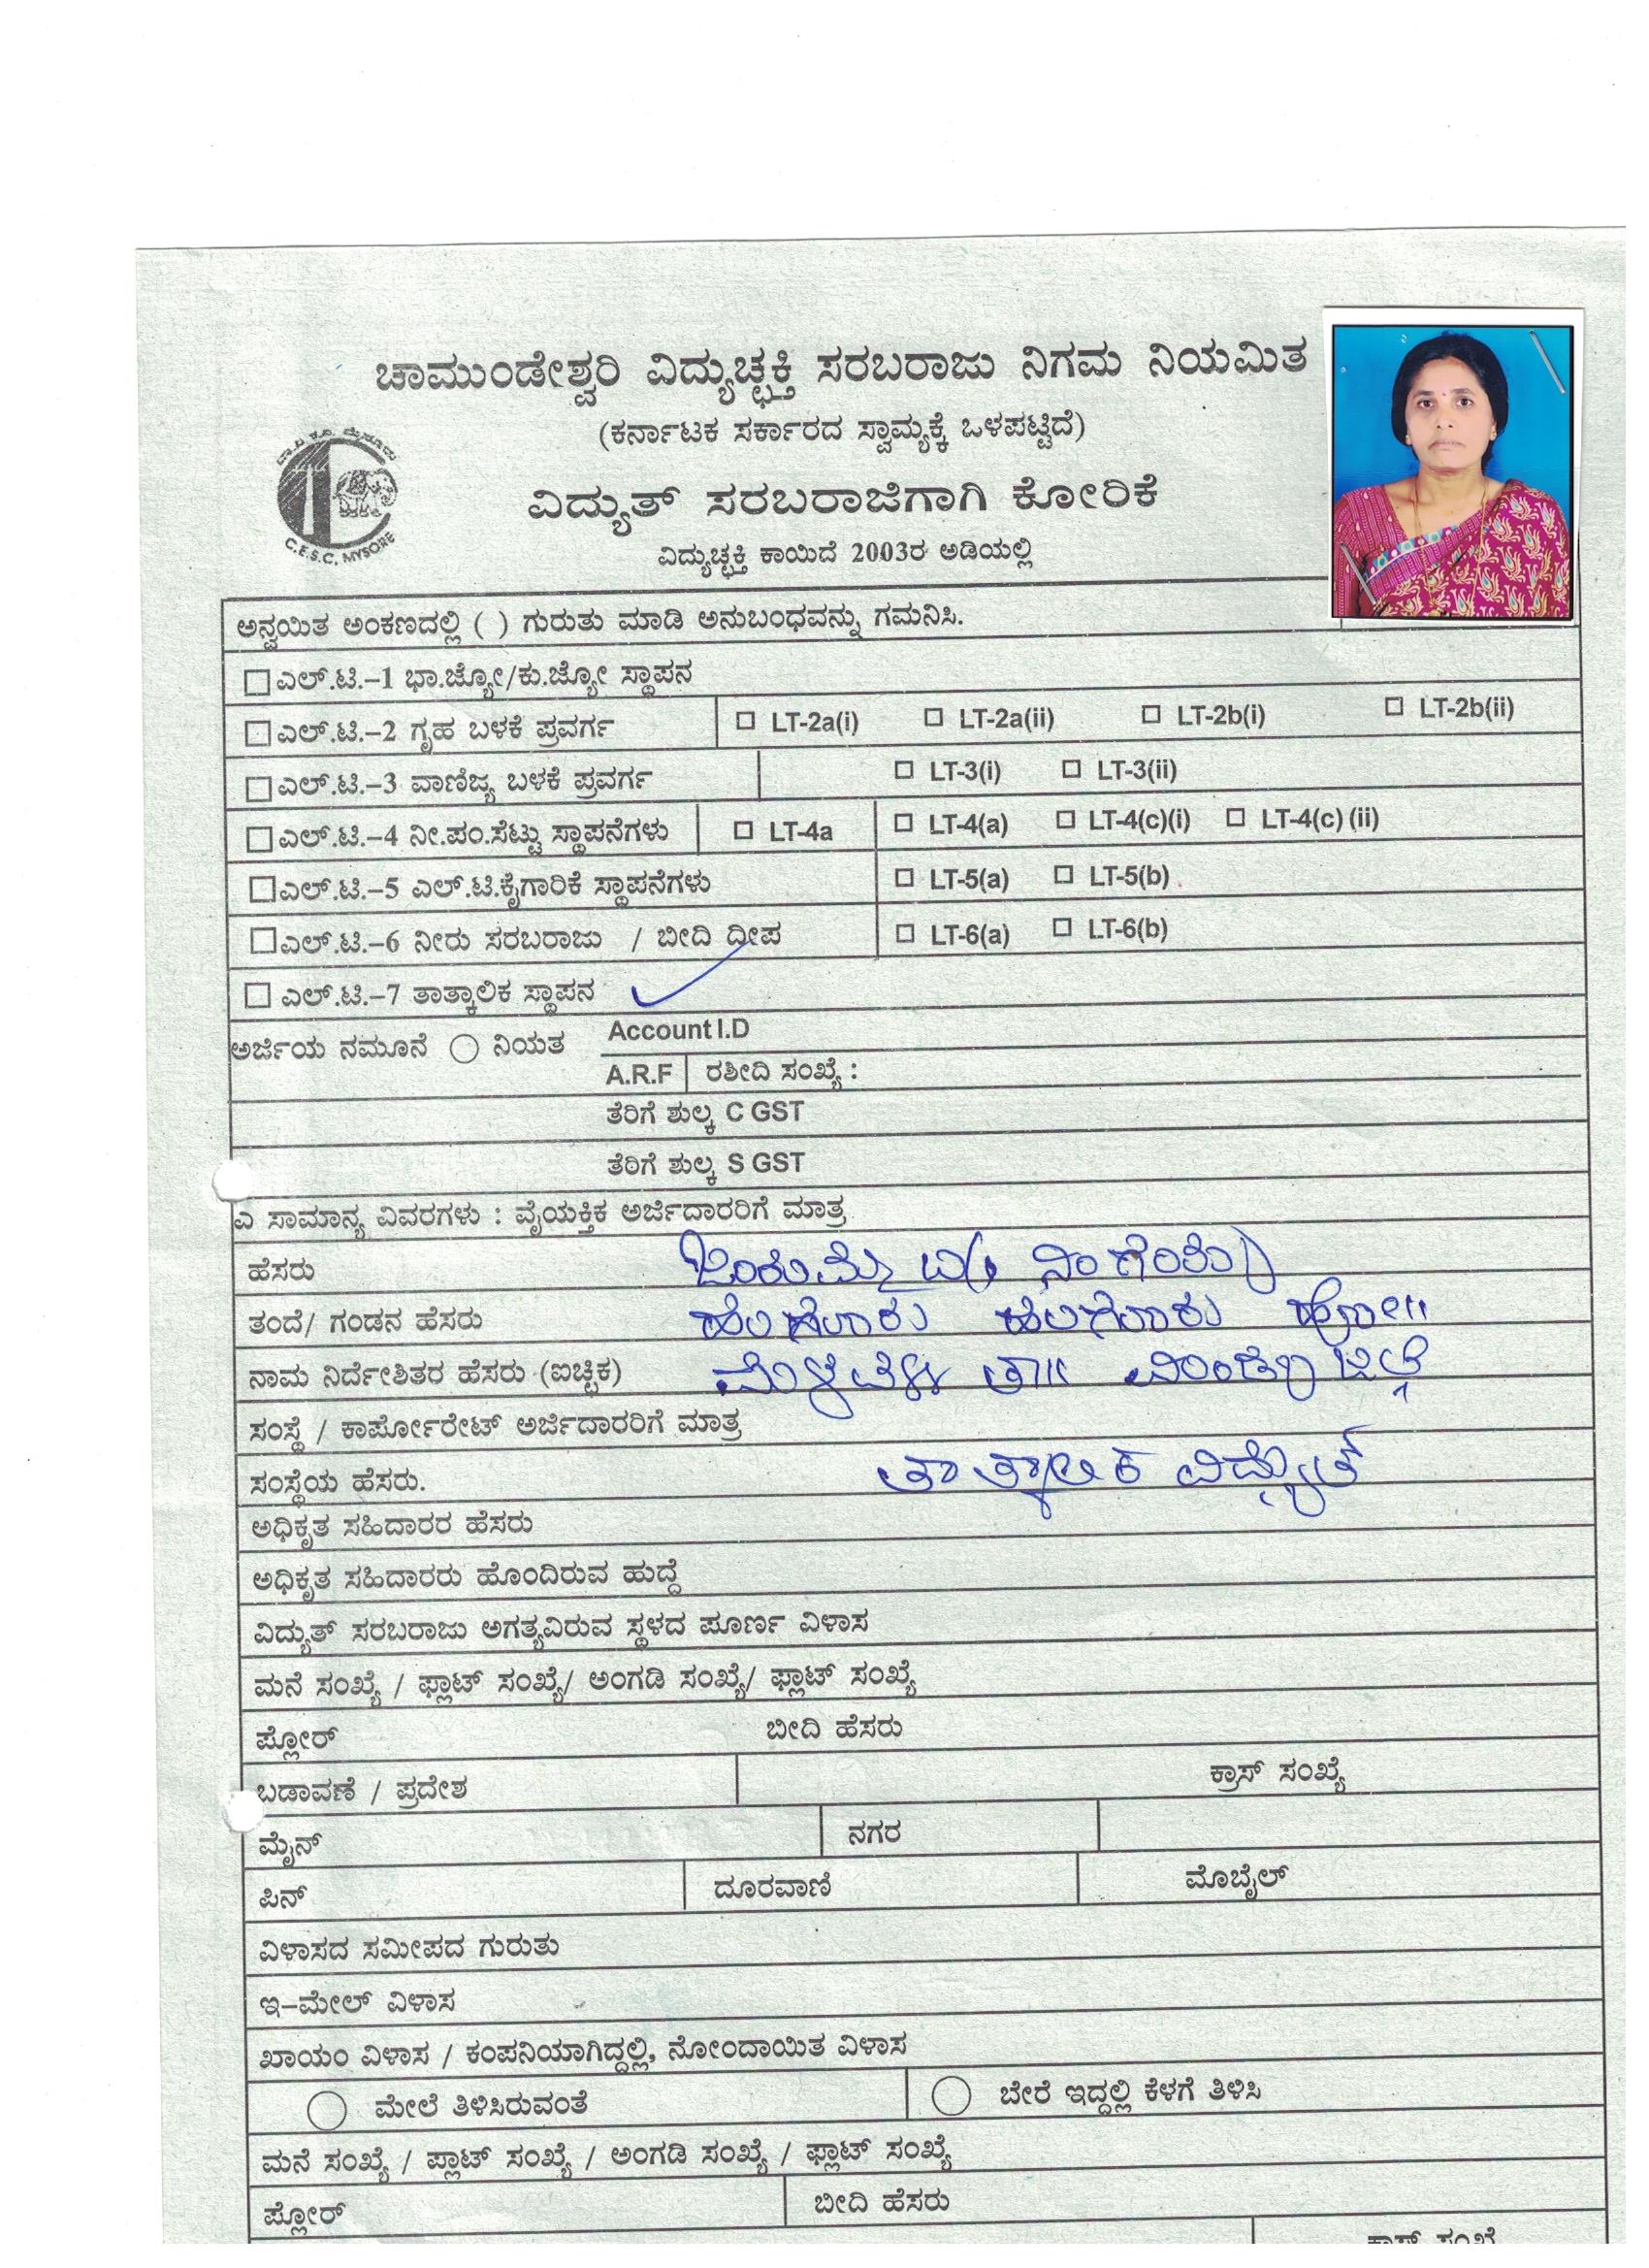 ಚಾಮುಂಡೇಶ್ವರಿ ವಿದ್ಯುಚ್ಛಕ್ತಿ ಸರಬರಾಜು ನಿಗಮ ನಿಯಮಿತ
(ಕರ್ನಾಟಕ ಸರ್ಕಾರದ ಸ್ವಾಮ್ಯಕ್ಕೆ ಒಳಪಟ್ಟಿದೆ)
C.E.S.C. MYSORE
ವಿದ್ಯುತ್ ಸರಬರಾಜಿಗಾಗಿ ಕೋರಿಕೆ
ವಿದ್ಯುಚ್ಛಕ್ತಿ ಕಾಯಿದೆ 2003ರ ಅಡಿಯಲ್ಲಿ
ಅನ್ವಯಿತ ಅಂಕಣದಲ್ಲಿ ( ) ಗುರುತು ಮಾಡಿ ಅನುಬಂಧವನ್ನು ಗಮನಿಸಿ.
ಎಲ್.ಟಿ.-1 ಭಾ.ಜ್ಯೋ/ಕು.ಜ್ಯೋ ಸ್ಥಾಪನ
ಎಲ್.ಟಿ.-2 ಗೃಹ ಬಳಕೆ ಪ್ರವರ್ಗ LT-2a(i) LT-2a(ii) LT-2b(i) LT-2b(ii)
ಎಲ್.ಟಿ.-3 ವಾಣಿಜ್ಯ ಬಳಕೆ ಪ್ರವರ್ಗ LT-3(i) LT-3(ii)
ಎಲ್.ಟಿ.-4 ನೀ.ಪಂ.ಸೆಟ್ಟು ಸ್ಥಾಪನೆಗಳು LT-4a LT-4(a) LT-4(c)(i) LT-4(c) (ii)
ಎಲ್.ಟಿ.-5 ಎಲ್.ಟಿ.ಕೈಗಾರಿಕೆ ಸ್ಥಾಪನೆಗಳು LT-5(a) LT-5(b)
ಎಲ್.ಟಿ.-6 ನೀರು ಸರಬರಾಜು / ಬೀದಿ ದೀಪ LT-6(a) LT-6(b)
ಎಲ್.ಟಿ.-7 ತಾತ್ಕಾಲಿಕ ಸ್ಥಾಪನ
ಅರ್ಜಿಯ ನಮೂನೆ ನಿಯತ Account I.D
A.R.F ರಶೀದಿ ಸಂಖ್ಯೆ :
ತೆರಿಗೆ ಶುಲ್ಕ C GST
ತೆರಿಗೆ ಶುಲ್ಕ S GST
ಎ ಸಾಮಾನ್ಯ ವಿವರಗಳು : ವೈಯಕ್ತಿಕ ಅರ್ಜಿದಾರರಿಗೆ ಮಾತ್ರ
ಹೆಸರು
ತಂದೆ/ ಗಂಡನ ಹೆಸರು
ನಾಮ ನಿರ್ದೇಶಿತರ ಹೆಸರು (ಐಚ್ಛಿಕ) ಮಳವಳ್ಳಿ ತಾ॥ ಮಂಡ್ಯ ಜಿಲ್ಲೆ
ಸಂಸ್ಥೆ / ಕಾರ್ಪೋರೇಟ್ ಅರ್ಜಿದಾರರಿಗೆ ಮಾತ್ರ
ಸಂಸ್ಥೆಯ ಹೆಸರು. ತಾತ್ಕಾಲಿಕ ವಿದ್ಯುತ್
ಅಧಿಕೃತ ಸಹಿದಾರರ ಹೆಸರು
ಅಧಿಕೃತ ಸಹಿದಾರರು ಹೊಂದಿರುವ ಹುದ್ದೆ
ವಿದ್ಯುತ್ ಸರಬರಾಜು ಅಗತ್ಯವಿರುವ ಸ್ಥಳದ ಪೂರ್ಣ ವಿಳಾಸ
ಮನೆ ಸಂಖ್ಯೆ / ಫ್ಲಾಟ್ ಸಂಖ್ಯೆ/ ಅಂಗಡಿ ಸಂಖ್ಯೆ/ ಫ್ಲಾಟ್ ಸಂಖ್ಯೆ
ಪ್ಲೋರ್ ಬೀದಿ ಹೆಸರು
ಬಡಾವಣೆ / ಪ್ರದೇಶ ಕ್ರಾಸ್ ಸಂಖ್ಯೆ
ಮೈನ್ ನಗರ
ಪಿನ್ ದೂರವಾಣಿ ಮೊಬೈಲ್
ವಿಳಾಸದ ಸಮೀಪದ ಗುರುತು
ಇ-ಮೇಲ್ ವಿಳಾಸ
ಖಾಯಂ ವಿಳಾಸ / ಕಂಪನಿಯಾಗಿದ್ದಲ್ಲಿ, ನೋಂದಾಯಿತ ವಿಳಾಸ
ಮೇಲೆ ತಿಳಿಸಿರುವಂತೆ ಬೇರೆ ಇದ್ದಲ್ಲಿ ಕೆಳಗೆ ತಿಳಿಸಿ
ಮನೆ ಸಂಖ್ಯೆ / ಪ್ಲಾಟ್ ಸಂಖ್ಯೆ / ಅಂಗಡಿ ಸಂಖ್ಯೆ / ಫ್ಲಾಟ್ ಸಂಖ್ಯೆ
ಪ್ಲೋರ್ ಬೀದಿ ಹೆಸರು
ಕ್ರಾಸ್ ಸಂಖ್ಯೆ